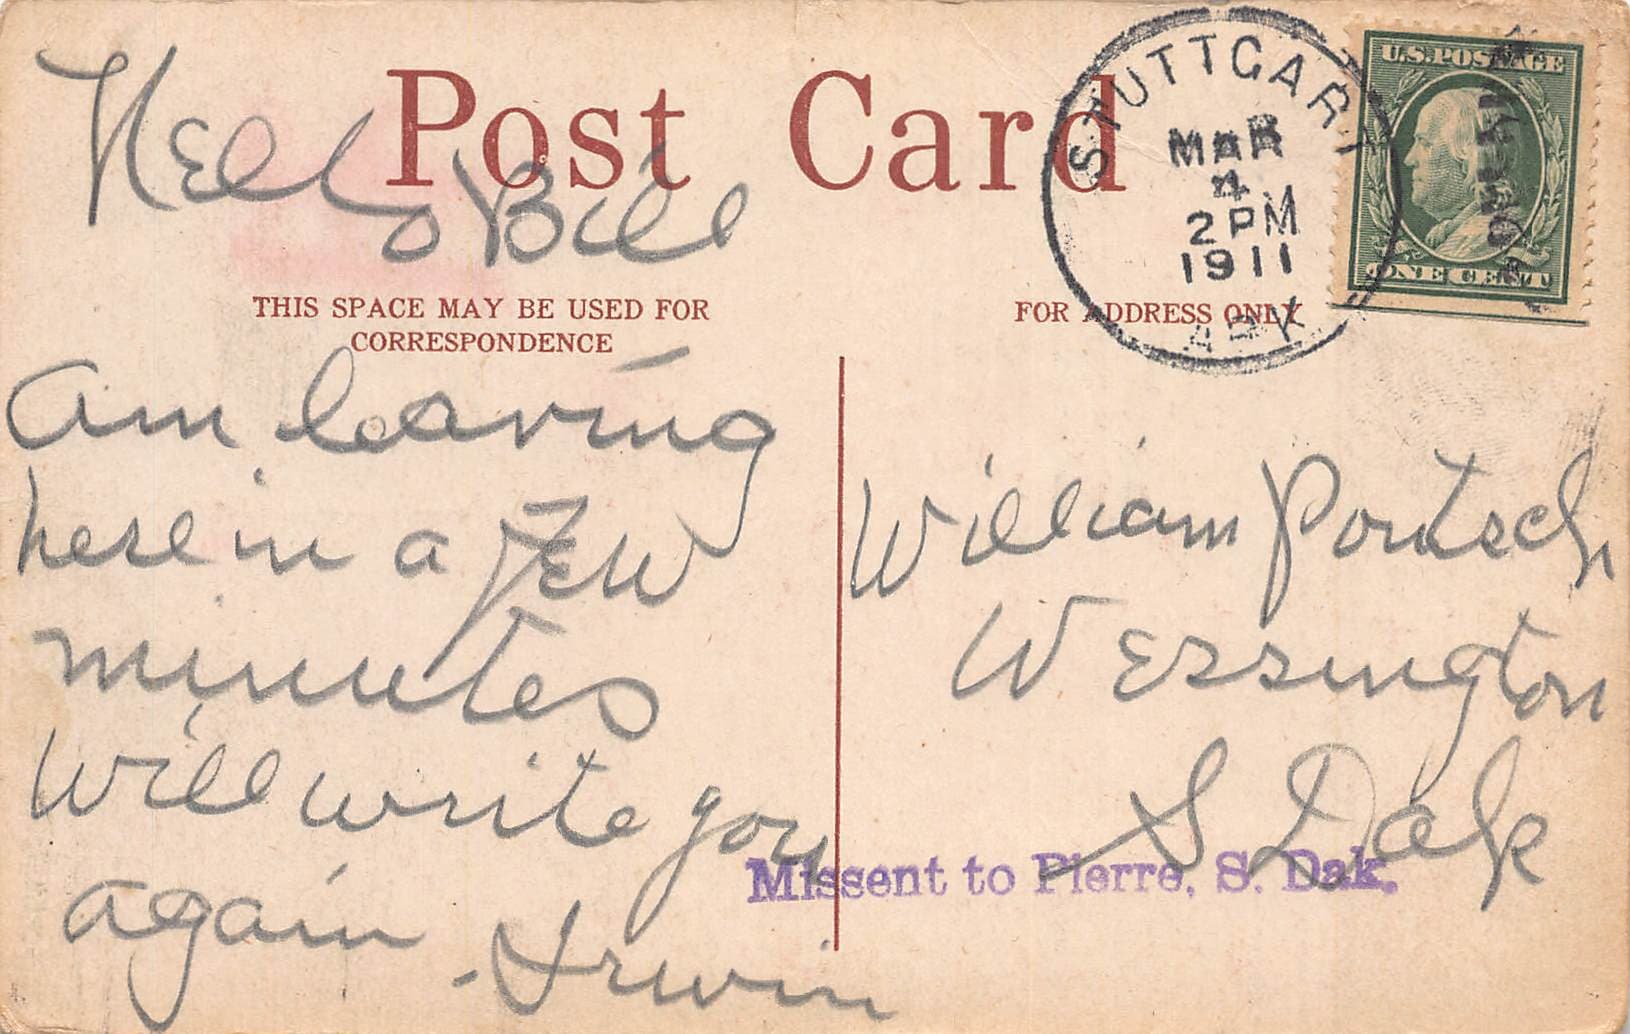 Post Card
Hello Bill
THIS SPACE MAY BE USED FOR
CORRESPONDENCE
am leaving
here in a FEW
minutes
Will write you
again
- Irwin
STUTTGART
MAR
4
2 PM
1911
ARK
U.S. POSTAGE
ONE CENT
FOR ADDRESS ONLY
William Portsch
Wessington
S Dak
Missent to Pierre, S. Dak.